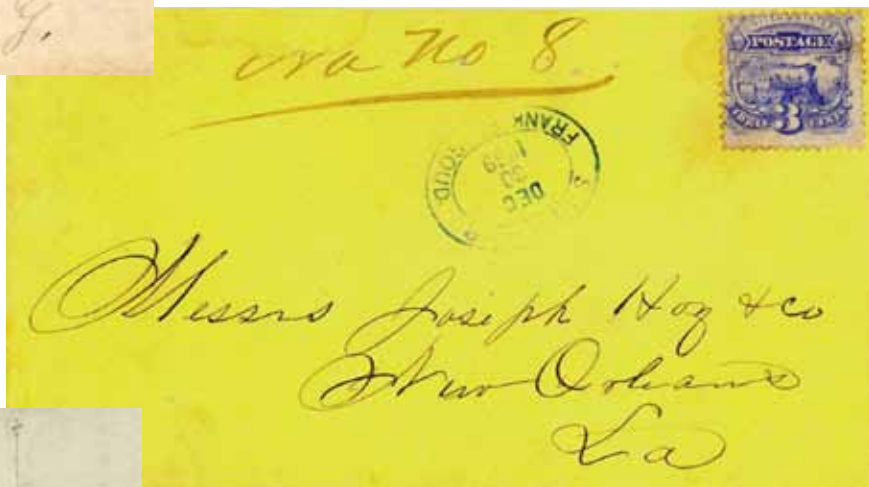 y.
No 8
POSTAGE
3
FRANK
DEC
30
Messrs Joseph Hoy & co
New Orleans
La